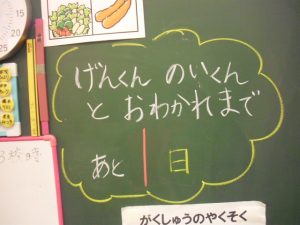 げんくん のいくん
と おわかれまで
あと 1 日
がくしゅうのやくそく